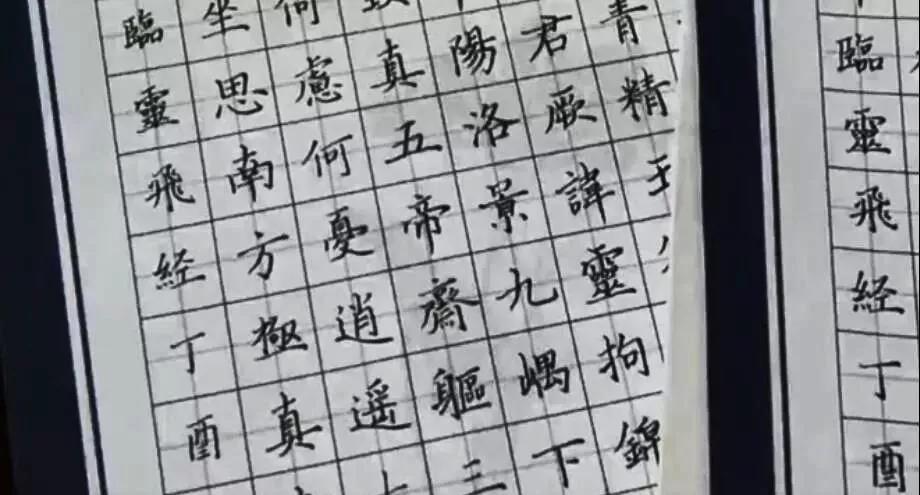 臨靈飛経丁酉
青精
君厥諱靈拘錦
陽洛景九嵎下
真五帝齋軀三
何慮何憂逍遥
坐思南方極真
臨靈飛経丁酉